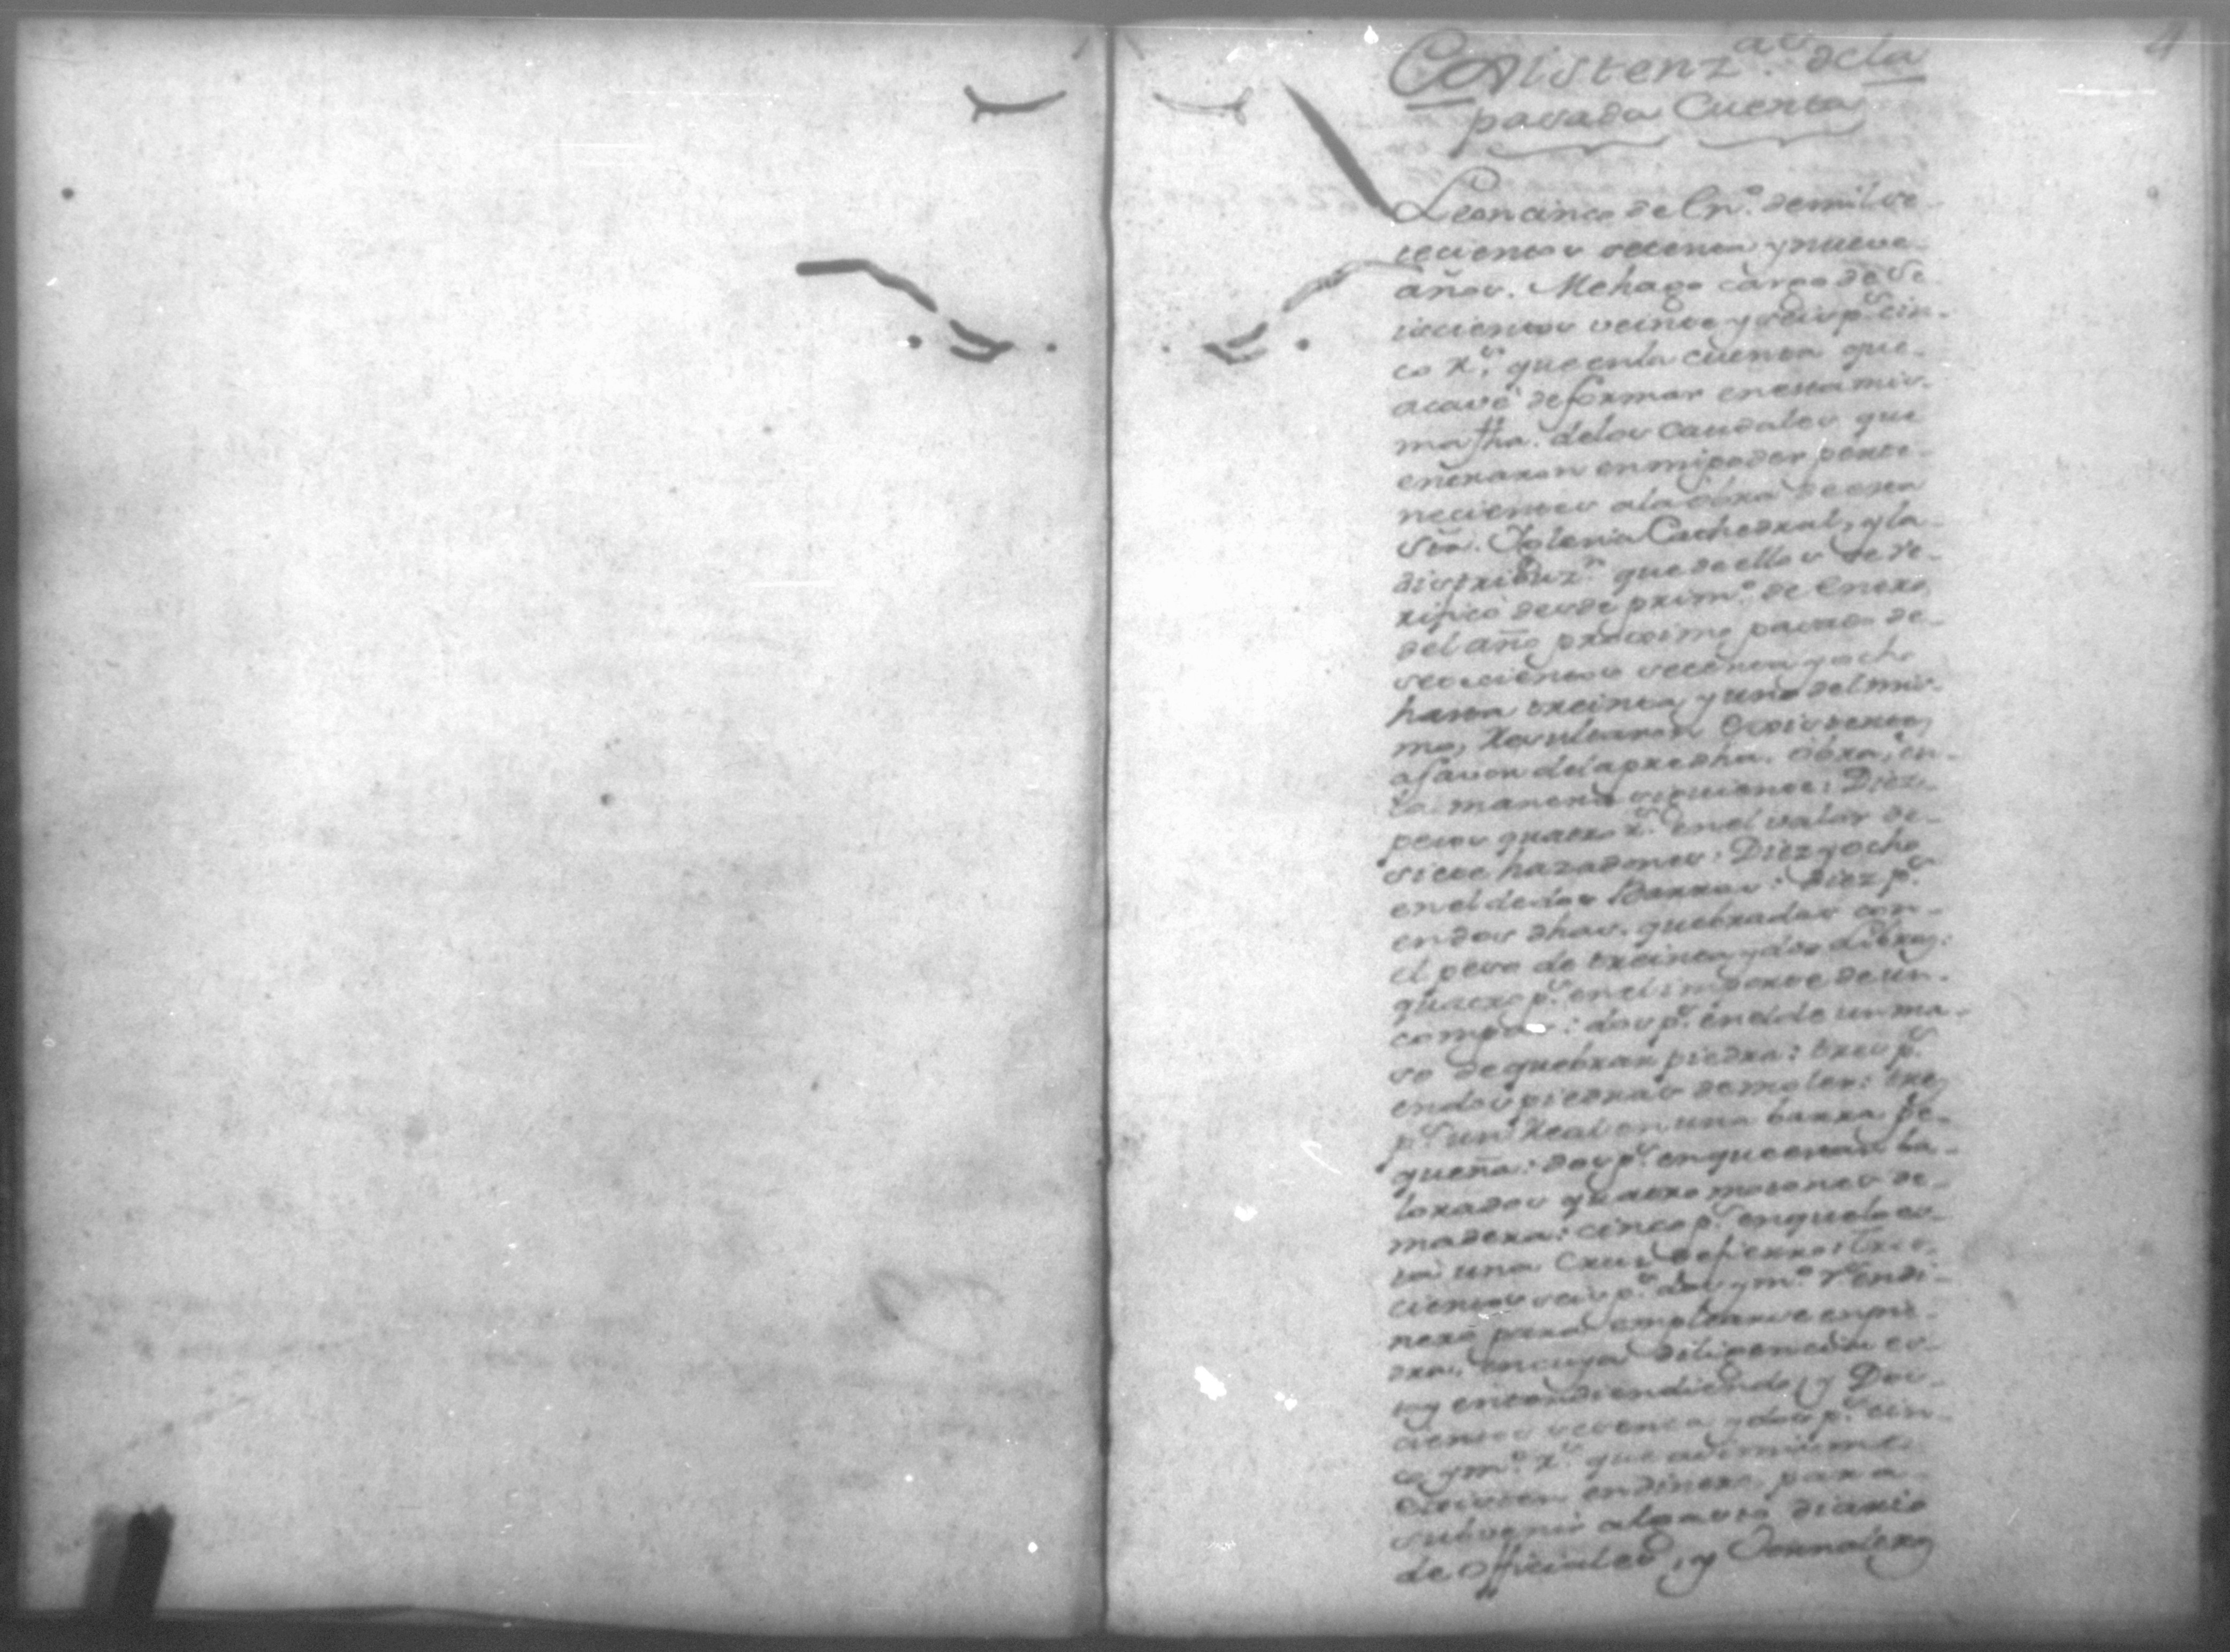 4
Existenz.as dela
pasada Cuenta
Leon cinco de En.o de mil se
tecientos setenta y nueve
años. Me hago cargo de se
iscientos veinte y seis p.s cin
co r.s que en la cuenta que
acavé de formar en esta mis
ma fha. delos caudales que
entraron en mi poder perte
necientes ala obra de esta
Sta. Iglesia Cathedral, y la
distribuz.n que de ellos se ve
rificó desde prim.o de Enero
del año proximo pasado de
setecientos setenta y ocho
hasta treinta y uno del mis
mo, Resultaron Existentes
a favor dela predha. obra, en
la manera siguiente: Diez
pesos quatro r.s en el valor de
siete hazadones: Diez y ocho
en el de dos Barras: diez p.s
en dos dhas. quebradas con
el peso de treinta y dos libras:
quatro p.s en el importe de un
compas: dos p.s en el de un ma
so de quebrar piedra: tres p.s
en dos piedras de moler: tres
p.s un Real en una barra pe
queña: dos p.s en que estan ba
lorados quatro mosones de
madera: cinco p.s en que lo es
tá una Cruz de fierro: Tres
cientos seis p.s dos y m.o r.s en di
nero para emplearse en pie
dra, en cuya diligencia es
toy entendiendo, y Dos
cientos sesenta y dos p.s cin
co y m.o r.s que asimismo
existen en dinero para
subvenir al gasto diario
de officiales, y Jornaleros